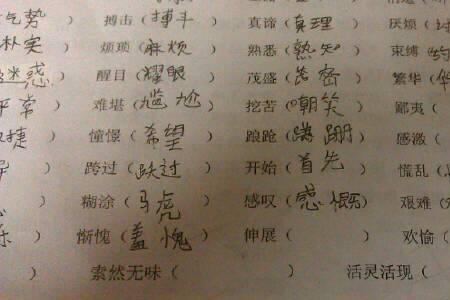 气势） 搏击（搏斗） 真谛（真理） 厌烦（讨
朴实） 烦琐（麻烦） 熟悉（熟知） 束缚（约
迷惑） 醒目（耀眼） 茂盛（茂密） 繁华（
平常） 难堪（尴尬） 挖苦（嘲笑） 鄙夷（
捷） 憧憬（希望） 踉跄（蹒跚） 感激（
） 跨过（跃过） 开始（首先） 慌乱（
） 糊涂（马虎） 感叹（感慨） 艰难（
乐） 惭愧（羞愧） 伸展（ ） 欢愉（
） 索然无味（ ） 活灵活现（